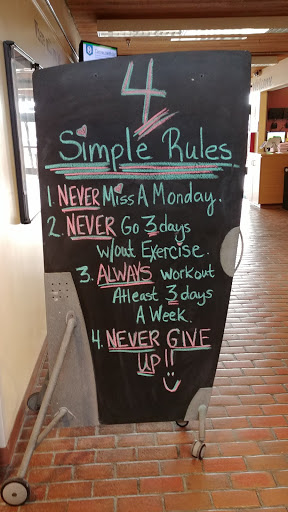 4
Simple Rules
1. NEVER Miss A Monday.
2. NEVER Go 3 days
w/out Exercise.
3. ALWAYS workout
Atleast 3 days
A Week.
4. NEVER GIVE
UP!!